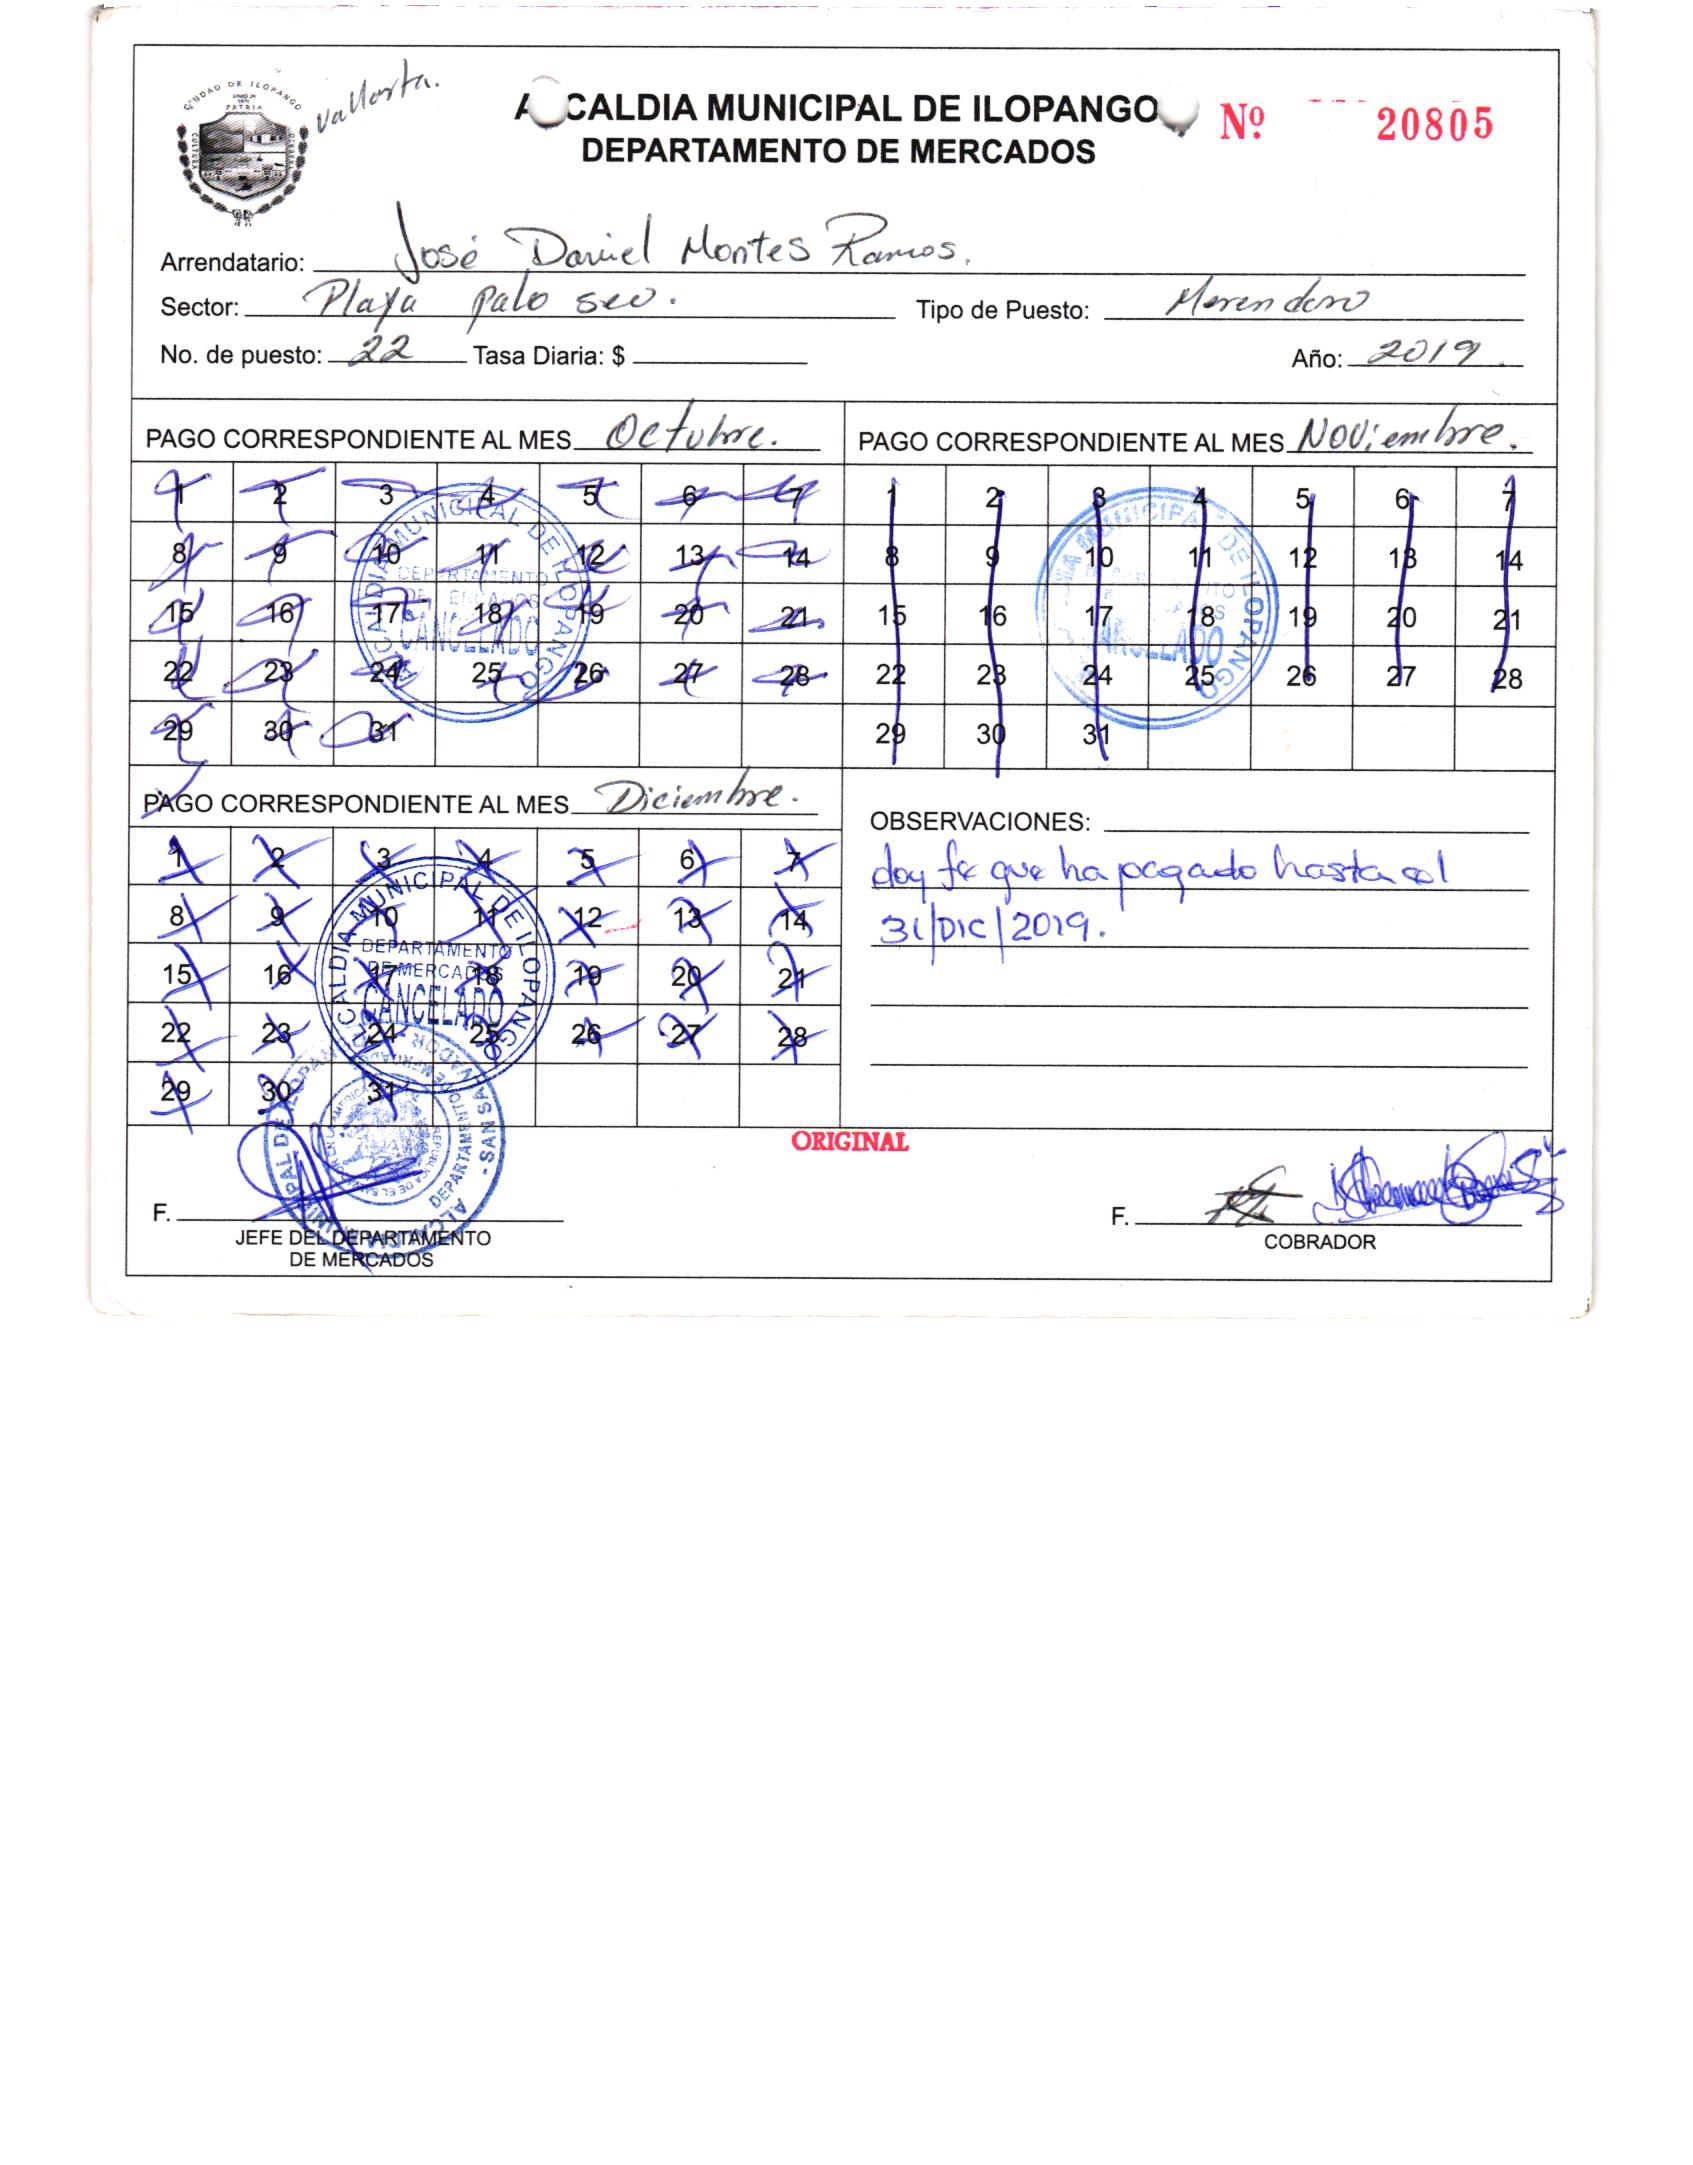 CIUDAD DE ILOPANGO
PATRIA
CULTURA
Vallarta.
ALCALDIA MUNICIPAL DE ILOPANGO
DEPARTAMENTO DE MERCADOS
Nº 20805
Arrendatario: José Daniel Montes Ramos.
Sector: Playa palo seco.
Tipo de Puesto: Merendero
No. de puesto: 22 Tasa Diaria: $
Año: 2019.
PAGO CORRESPONDIENTE AL MES Octubre.
1 2 3 4 5 6 7
8 9 10 11 12 13 14
15 16 17 18 19 20 21
22 23 24 25 26 27 28
29 30 31
ALCALDIA MUNICIPAL DE ILOPANGO
DEPARTAMENTO
DE MERCADOS
CANCELADO
PAGO CORRESPONDIENTE AL MES Noviembre.
1 2 3 4 5 6 7
8 9 10 11 12 13 14
15 16 17 18 19 20 21
22 23 24 25 26 27 28
29 30 31
MUNICIPAL DE ILOPANGO
PAGO CORRESPONDIENTE AL MES Diciembre.
1 2 3 4 5 6 7
8 9 10 11 12 13 14
15 16 17 18 19 20 21
22 23 24 25 26 27 28
29 30 31
ALCALDIA MUNICIPAL DE ILOPANGO
DEPARTAMENTO
DE MERCADOS
CANCELADO
OBSERVACIONES:
doy fe que ha pagado hasta el
31/DIC/2019.
ORIGINAL
F.
JEFE DEL DEPARTAMENTO
DE MERCADOS
F.
COBRADOR